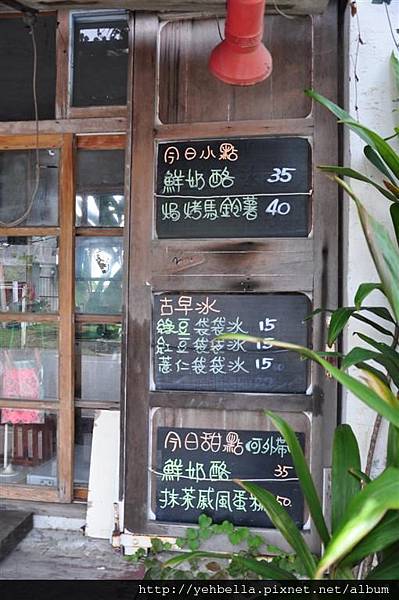 今日小點
鮮奶酪 35
焗烤馬鈴薯 40
古早冰
綠豆袋袋冰 15
紅豆袋袋冰 15
薏仁袋袋冰 15
今日甜點 可外帶
鮮奶酪 35
抹茶戚風蛋糕 50
http://yehbella.pixnet.net/album